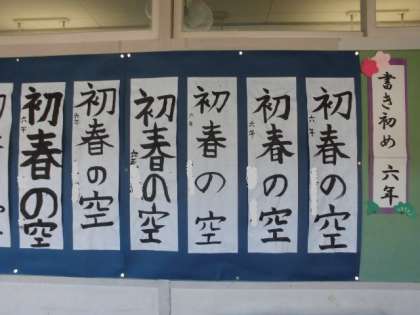 書き初め 六年
初春の空
六年
初春の空
六年
初春の空
六年
初春の空
六年
初春の空
六年
初春の空
六年